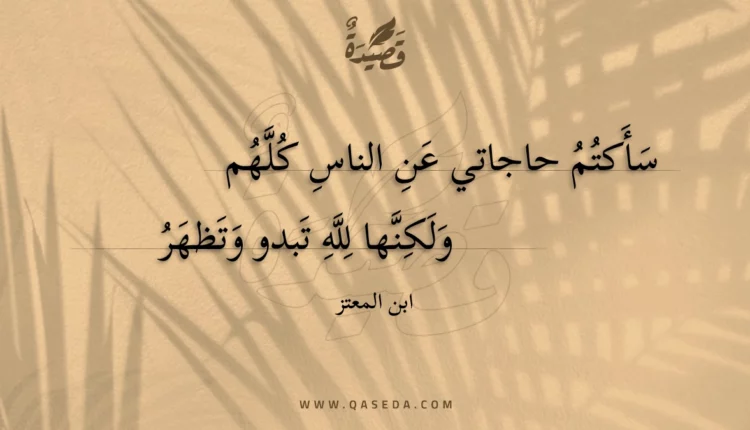 قَصِيدَةٌ
سَأَكتُمُ حاجاتي عَنِ الناسِ كُلَّهُم
وَلَكِنَّها لِلَّهِ تَبدو وَتَظهَرُ
ابن المعتز
WWW.QASEDA.COM